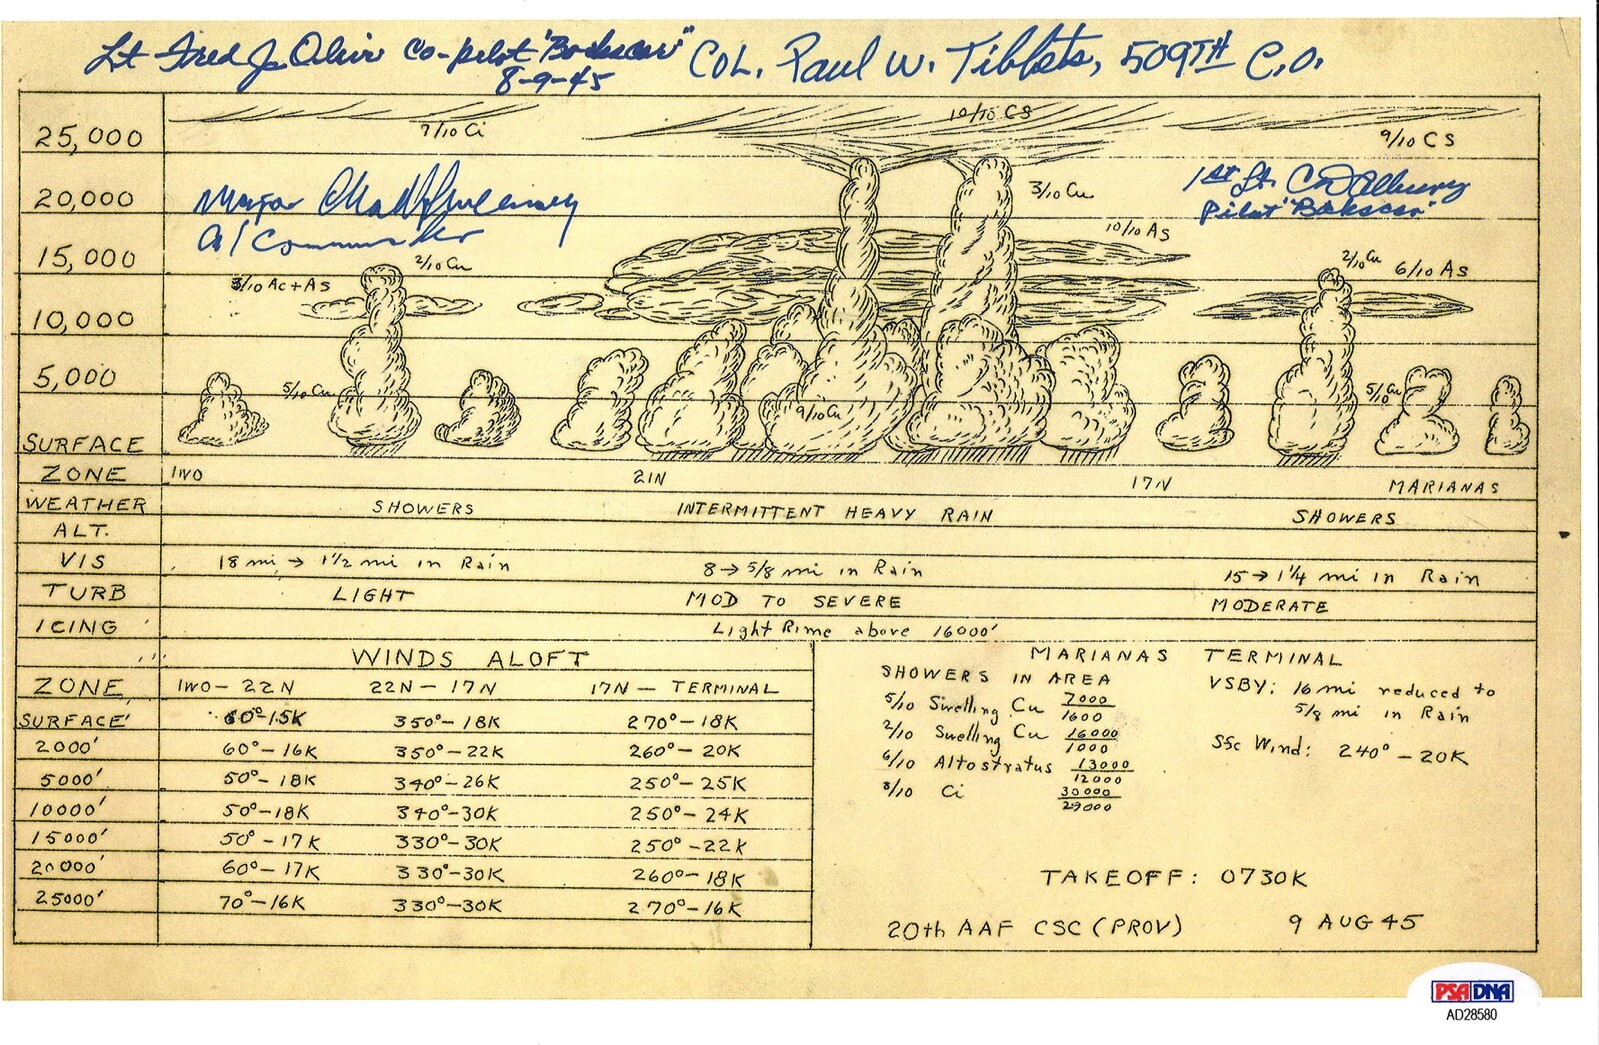 Lt Fred J. Olivi Co-pilot "Bockscar" COL. Paul W. Tibbets, 509TH C.O.
8-9-45
25,000 7/10 Ci 10/10 CS 9/10 CS
20,000 Major Charles W. Sweeney 3/10 Cu 1st Lt. C D Albury
Pilot "Bockscar"
A/Commander 10/10 As
15,000 2/10 Cu 2/10 Cu 6/10 As
3/10 Ac + As
10,000
5,000 5/10 Cu 9/10 Cu 5/10 Cu
SURFACE
ZONE IWO 21N 17N MARIANAS
WEATHER SHOWERS INTERMITTENT HEAVY RAIN SHOWERS
ALT.
VIS 18 mi → 1 1/2 mi in Rain 8 → 5/8 mi in Rain 15 → 1 1/4 mi in Rain
TURB LIGHT MOD TO SEVERE MODERATE
ICING Light Rime above 16000'
WINDS ALOFT
ZONE IWO - 22N 22N - 17N 17N - TERMINAL
SURFACE' 60° - 15K 350° - 18K 270° - 18K
2000' 60° - 16K 350° - 22K 260° - 20K
5000' 50° - 18K 340° - 26K 250° - 25K
10000' 50° - 18K 340° - 30K 250° - 24K
15000' 50° - 17K 330° - 30K 250° - 22K
20000' 60° - 17K 330° - 30K 260° - 18K
25000' 70° - 16K 330° - 30K 270° - 16K
MARIANAS TERMINAL
SHOWERS IN AREA
5/10 Swelling Cu 7000/1600
2/10 Swelling Cu 16000/1000
6/10 Altostratus 13000/12000
8/10 Ci 30000/29000
VSBY: 16 mi reduced to
5/8 mi in Rain
Sfc Wind: 240° - 20K
TAKEOFF: 0730K
20th AAF CSC (PROV) 9 AUG 45
PSA DNA
AD28580